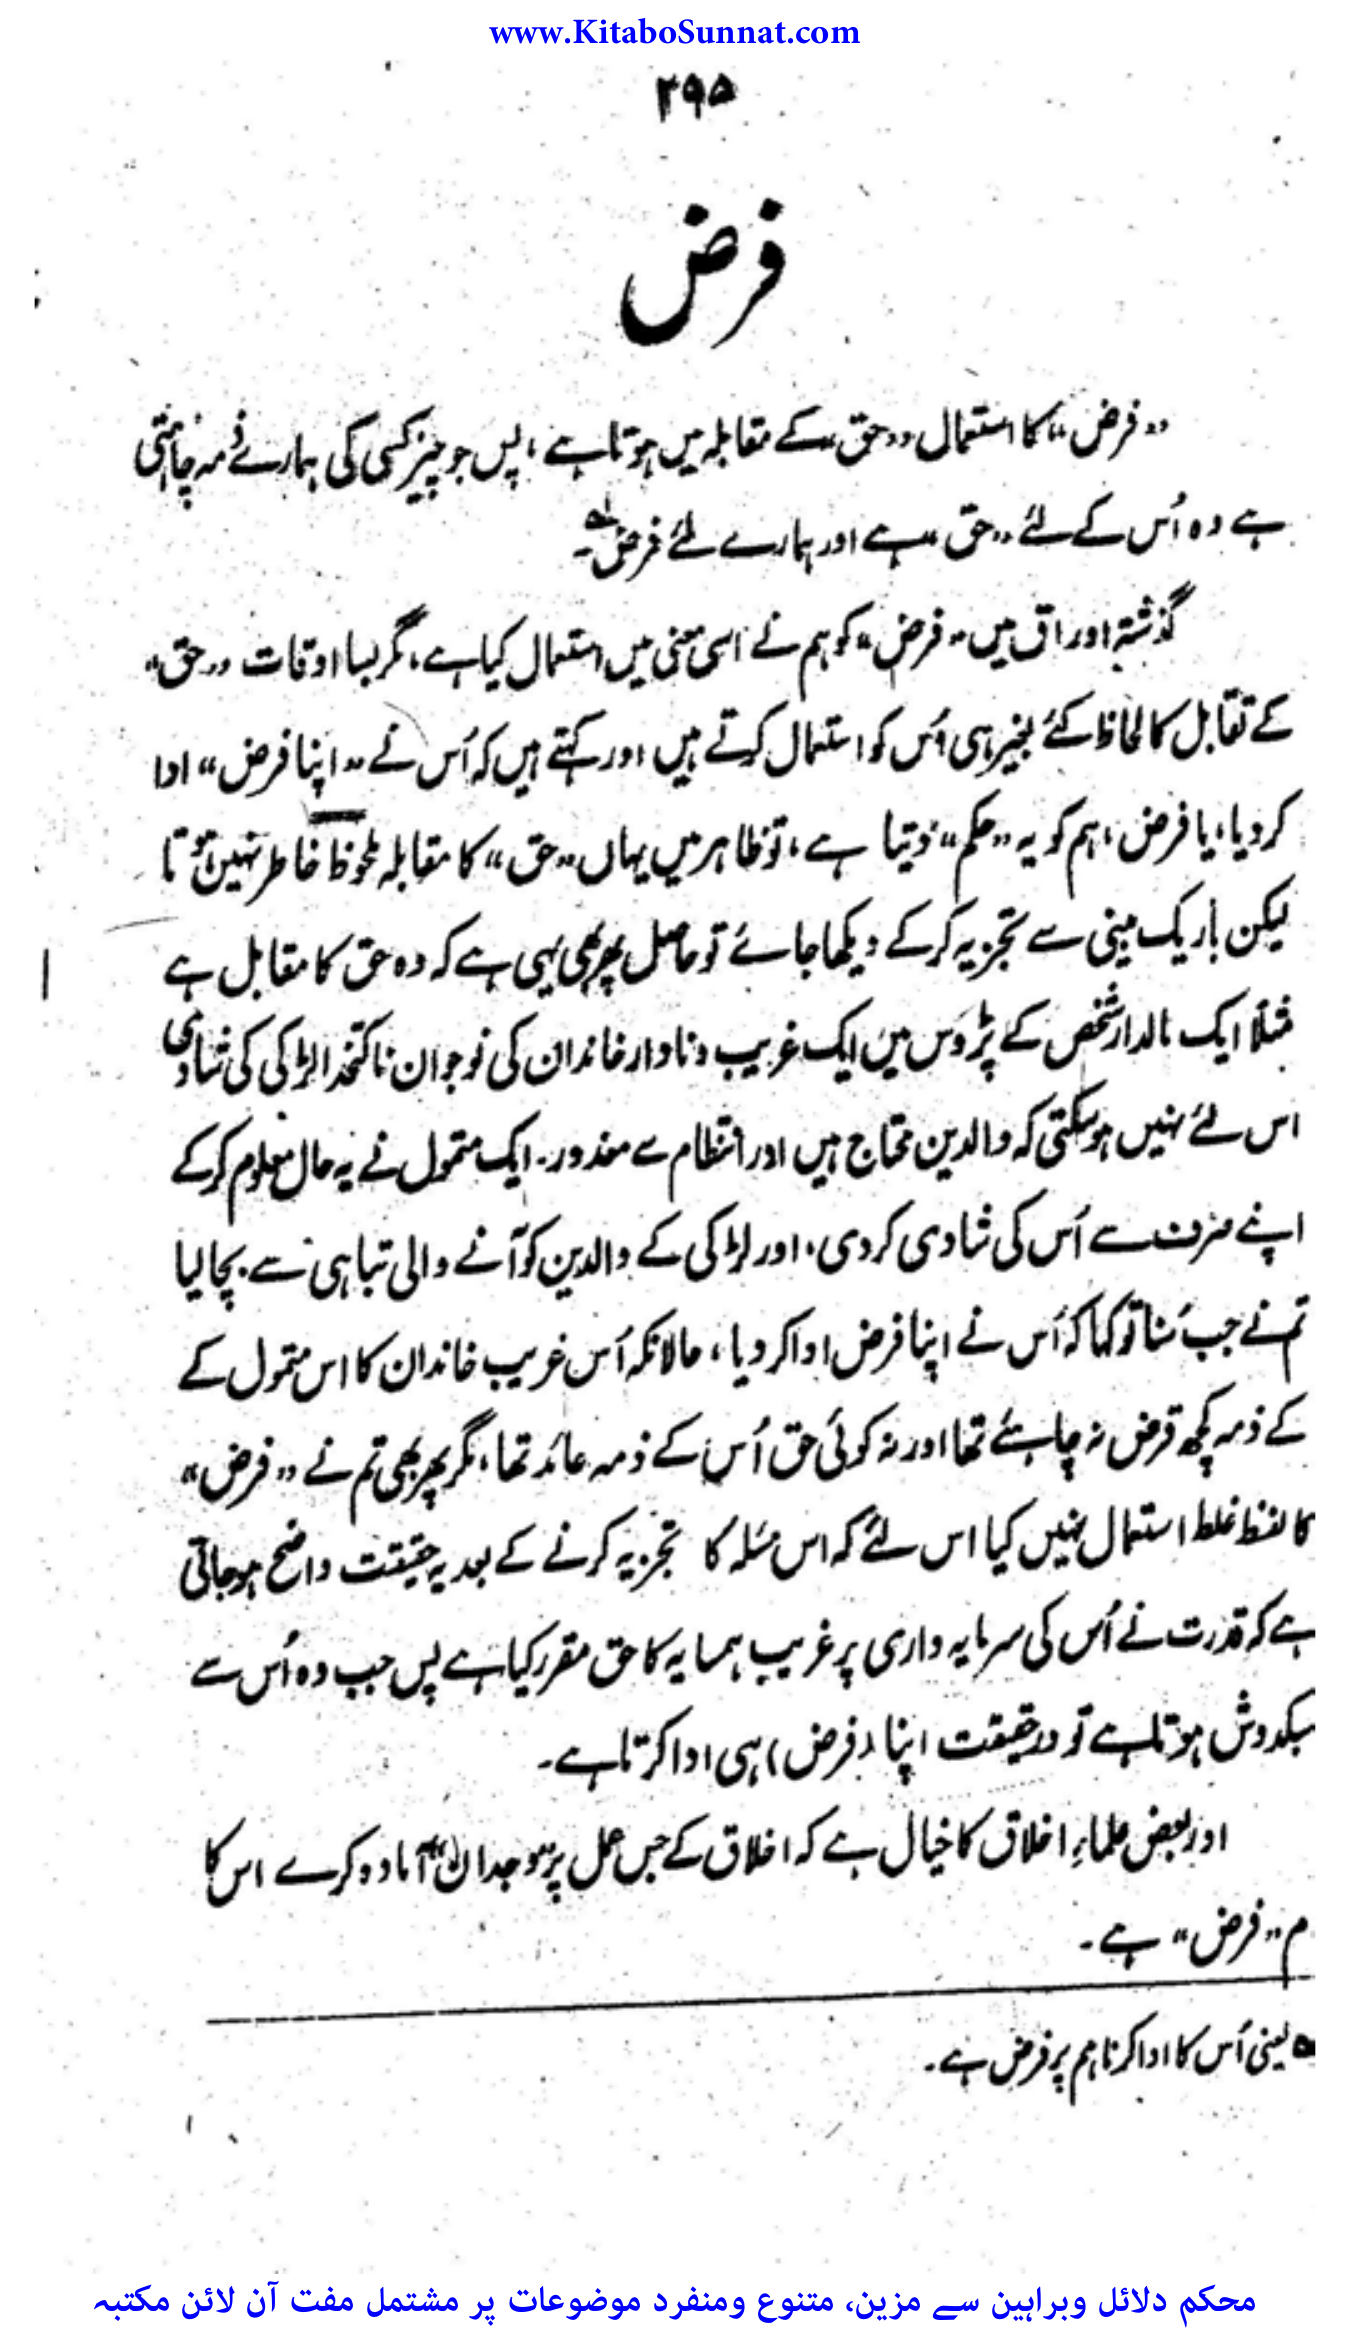 www.KitaboSunnat.com
۲۹۵
فرض
"فرض" کا استعمال "حق" کے مقابلہ میں ہوتا ہے، پس جو چیز کسی کی ہمارے ذمہ چاہئتی
ہے وہ اُس کے لئے "حق" ہے اور ہمارے لئے فرض۔
گذشتہ اوراق میں "فرض" کو ہم نے اسی معنی میں استعمال کیا ہے، مگر بسا اوقات "حق"
کے تقابل کا لحاظ کئے بغیر ہی اُس کو استعمال کرتے ہیں اور کہتے ہیں کہ اُس نے "اپنا فرض" ادا
کر دیا، یا فرض، ہم کو یہ "حکم" دیتا ہے، تو ظاہر میں یہاں "حق" کا مقابلہ ملحوظ خاطر نہیں ہوتا
لیکن باریک بینی سے تجزیہ کر کے دیکھا جائے تو حاصل پھر بھی یہی ہے کہ وہ حق کا مقابل ہے
مثلاً ایک مالدار شخص کے پڑوس میں ایک غریب و نادار خاندان کی نوجوان ناکتخدا لڑکی کی شادی
اس لئے نہیں ہو سکتی کہ والدین محتاج ہیں اور انتظام سے معذور۔ ایک متمول نے یہ حال معلوم کر کے
اپنے صرف سے اُس کی شادی کر دی، اور لڑکی کے والدین کو آنے والی تباہی سے بچا لیا
تم نے جب سُنا تو کہا کہ اُس نے اپنا فرض ادا کر دیا، حالانکہ اُس غریب خاندان کا اس متمول کے
کے ذمہ کچھ قرض نہ چاہئے تھا اور نہ کوئی حق اُس کے ذمہ عائد تھا، مگر پھر بھی تم نے "فرض"
کا لفظ غلط استعمال نہیں کیا اس لئے کہ اس مسئلہ کا تجزیہ کرنے کے بعد یہ حقیقت واضح ہو جاتی
ہے کہ قدرت نے اُس کی سرمایہ داری پر غریب ہمسایہ کا حق مقرر کیا ہے پس جب وہ اُس سے
سبکدوش ہوتا ہے تو درحقیقت اپنا (فرض) ہی ادا کرتا ہے۔
اور بعض علماءِ اخلاق کا خیال ہے کہ اخلاق کے جس عمل پر "وجدان" آمادہ کرے اس کا
م "فرض" ہے۔
یعنی اُس کا ادا کرنا ہم پر فرض ہے۔
محکم دلائل وبراہین سے مزین، متنوع ومنفرد موضوعات پر مشتمل مفت آن لائن مکتبہ